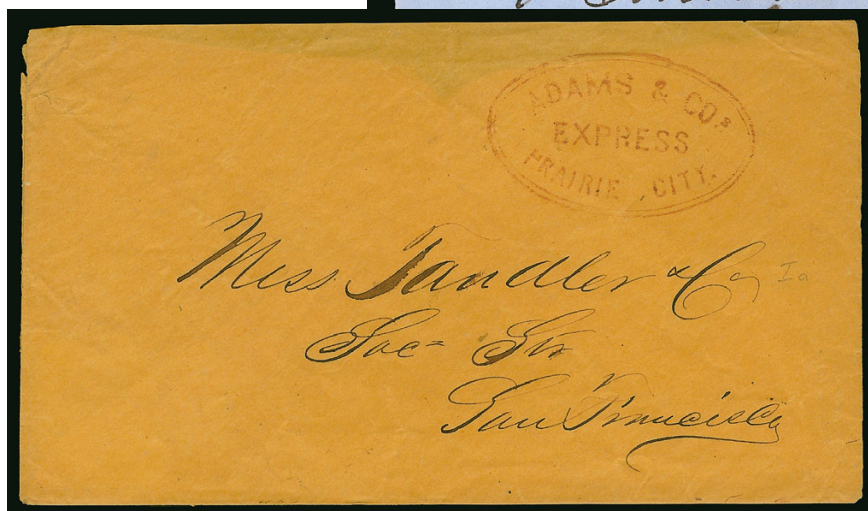 ADAMS & CO.s
EXPRESS
PRAIRIE CITY.
Mess Tandler & Co
Sac= Str
San Francisco